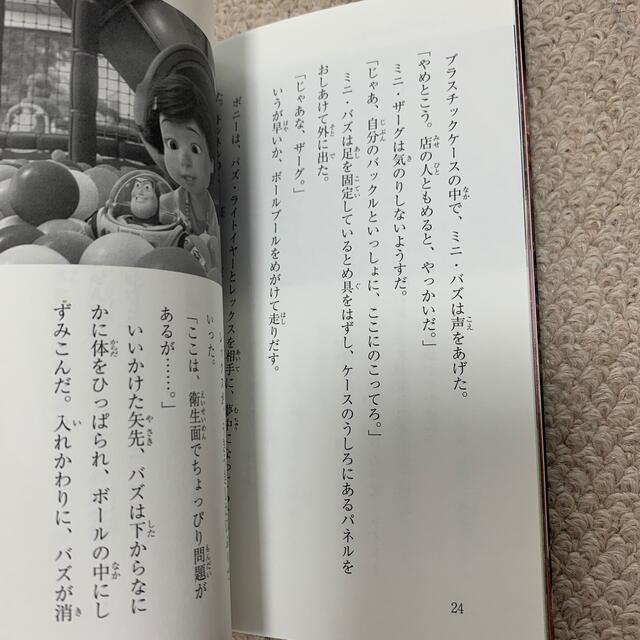 プラスチックケースの中で、ミニ・バズは声をあげた。
「やめとこう。店の人ともめると、やっかいだ。」
ミニ・ザーグは気のりしないようすだ。
「じゃあ、自分のバックルといっしょに、ここにのこってろ。」
ミニ・バズは足を固定しているとめ具をはずし、ケースのうしろにあるパネルを
おしあけて外に出た。
「じゃあな、ザーグ。」
いうが早いか、ボールプールをめがけて走りだす。
ボニーは、バズ・ライトイヤーとレックスを相手に、夢中になっ
いった。
「ここは、衛生面でちょっぴり問題が
あるが……。」
いいかけた矢先、バズは下からなに
かに体をひっぱられ、ボールの中にし
ずみこんだ。入れかわりに、バズが消
24